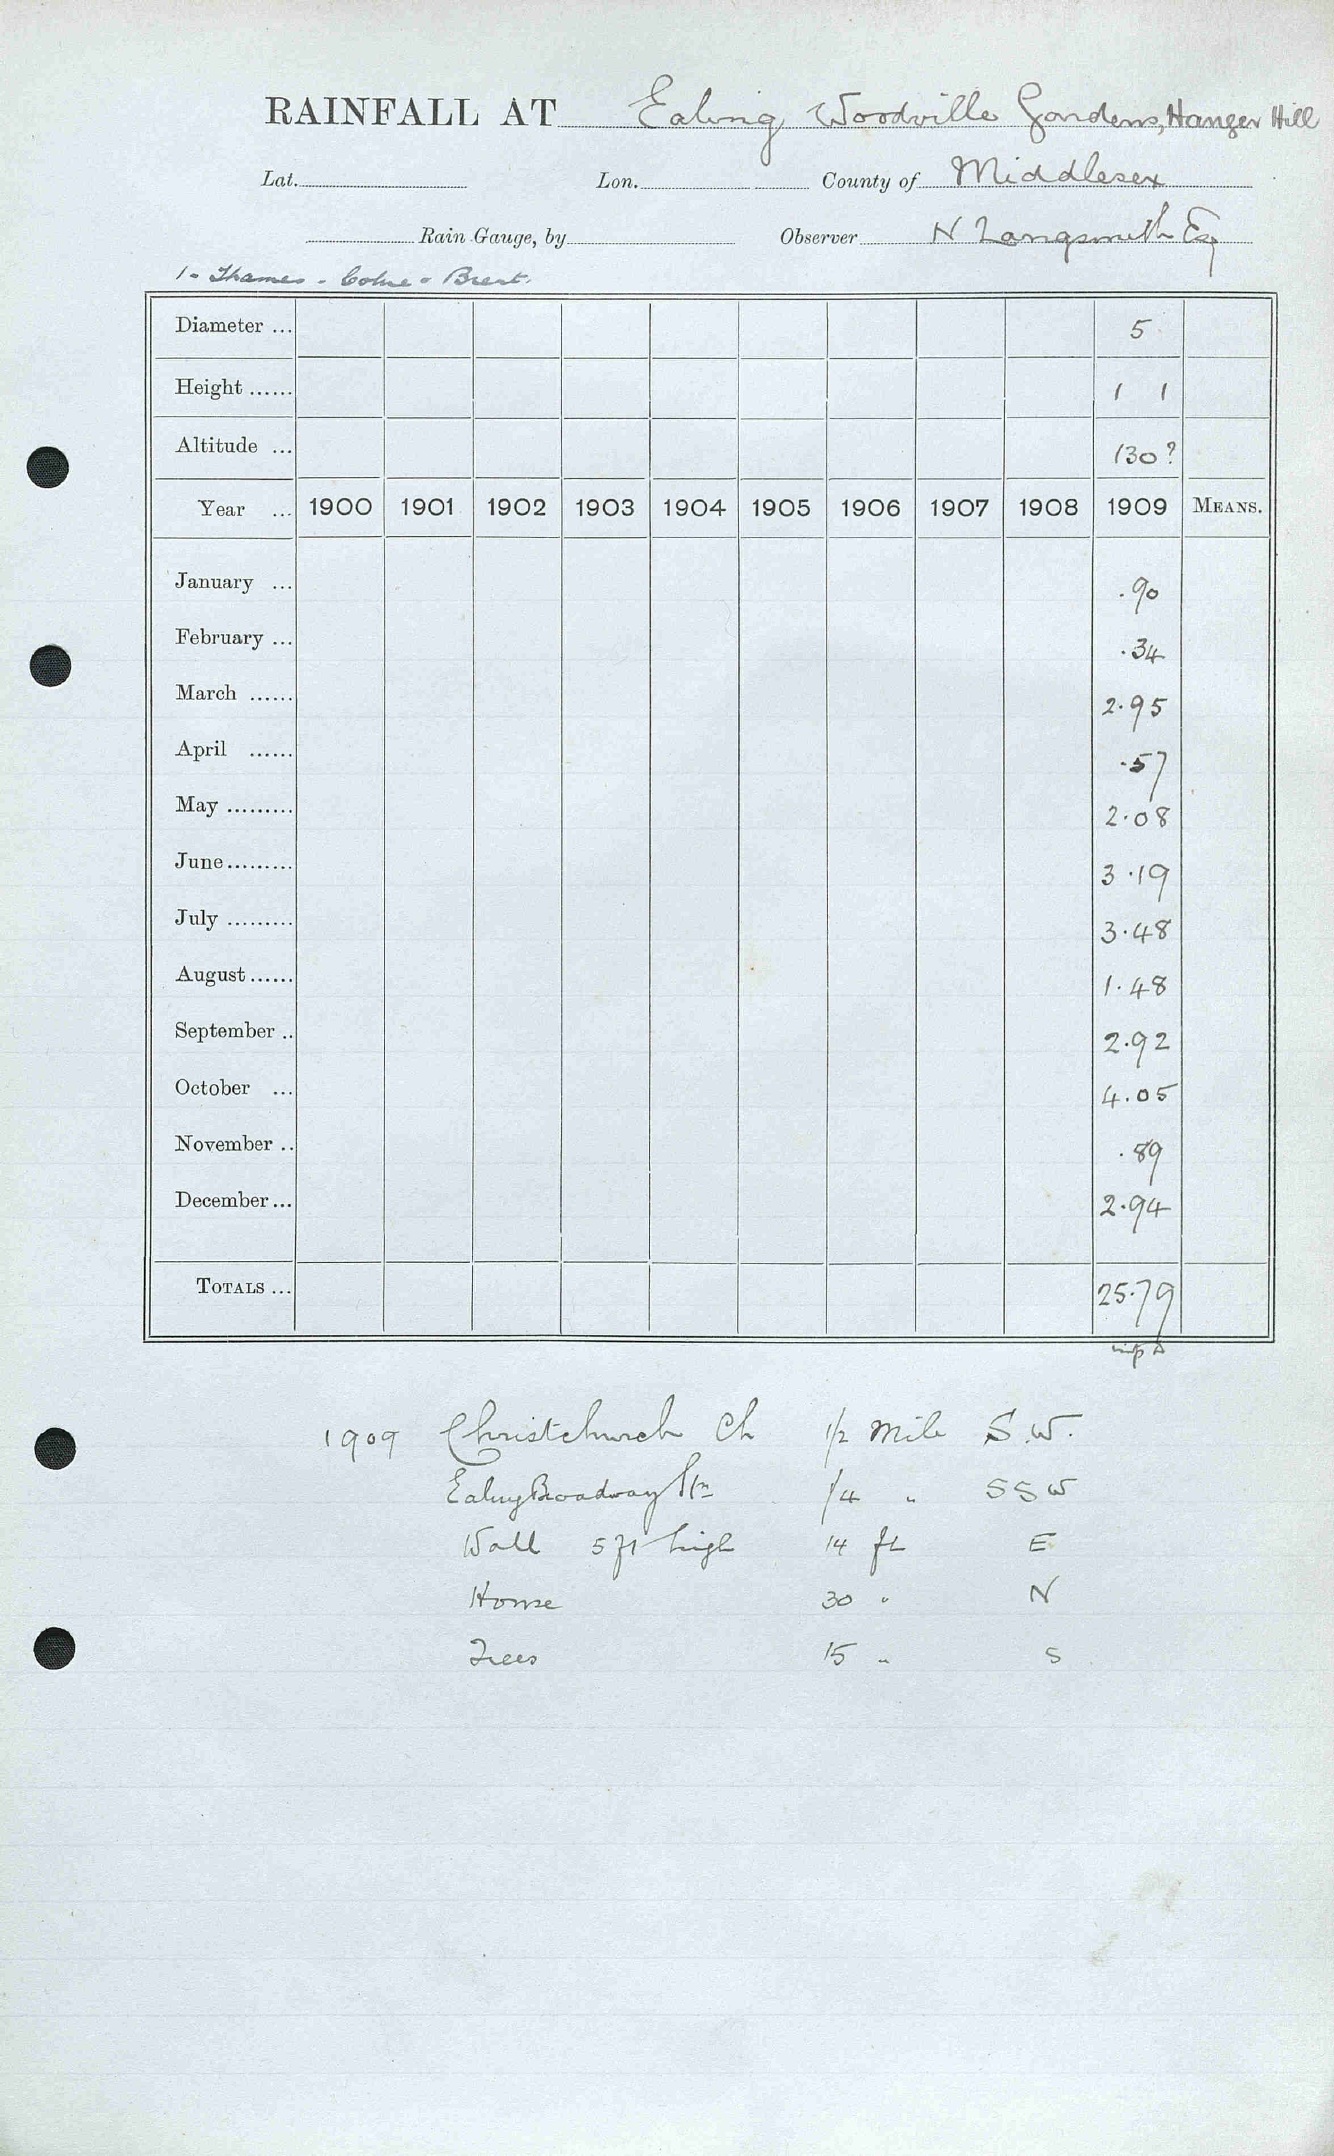 RAINFALL AT Ealing Woodville Gardens, Hanger Hill
Lat. Lon. County of Middlesex
Rain Gauge, by Observer N Langsmith Esq
1 - Thames - Colne - Brent.
Diameter ... 5
Height ...... 1 1
Altitude ... 130?
Year ... 1900 1901 1902 1903 1904 1905 1906 1907 1908 1909 MEANS.
January ... .90
February ... .34
March ...... 2.95
April ...... .57
May ......... 2.08
June ......... 3.19
July ......... 3.48
August ...... 1.48
September .. 2.92
October ... 4.05
November .. .89
December ... 2.94
TOTALS ... 25.79
1909 Christchurch Ch 1/2 Mile S.W.
Ealing Broadway Stn 1/4 " SSW
Wall 5 ft high 14 ft E
House 30 " N
Trees 15 " S